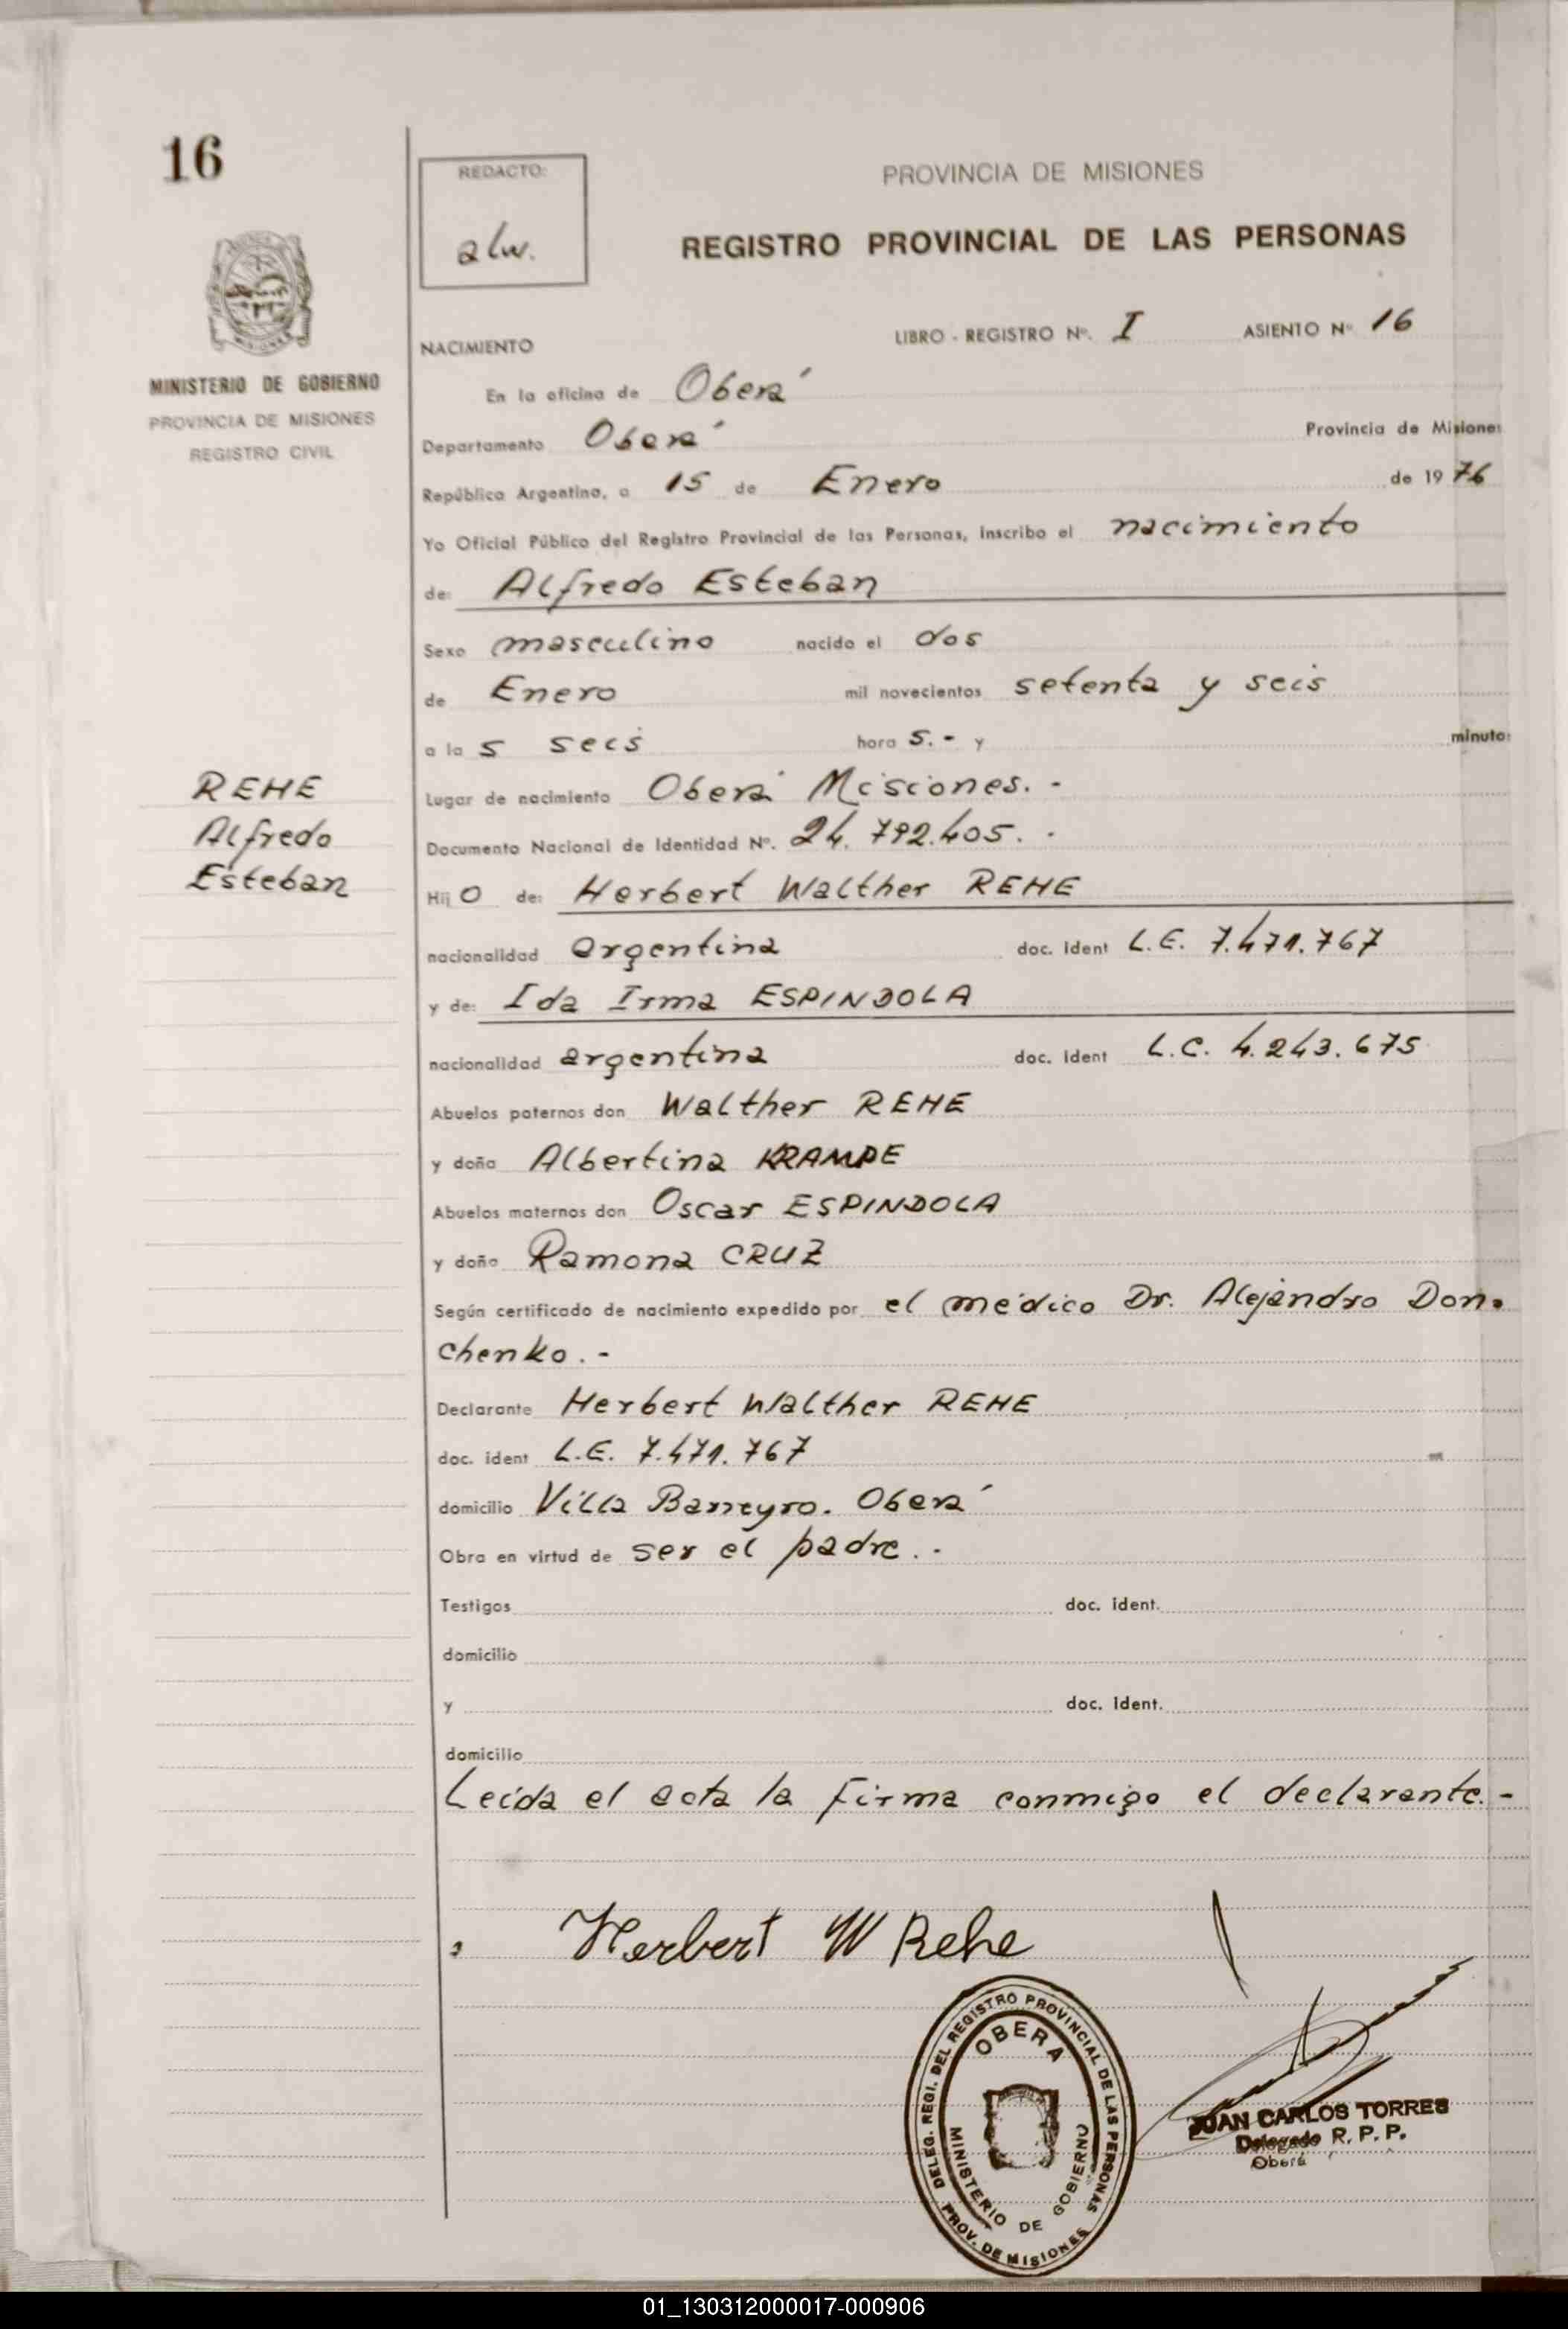 16
REDACTO:
alw.
PROVINCIA DE MISIONES
REGISTRO PROVINCIAL DE LAS PERSONAS
MINISTERIO DE GOBIERNO
PROVINCIA DE MISIONES
REGISTRO CIVIL
NACIMIENTO LIBRO - REGISTRO Nº. I ASIENTO Nº 16
En la oficina de Oberá
Departamento Oberá Provincia de Misiones
República Argentina, a 15 de Enero de 1976
Yo Oficial Público del Registro Provincial de las Personas, inscribo el nacimiento
de: Alfredo Esteban
Sexo masculino nacido el dos
de Enero mil novecientos setenta y seis
a la s seis hora s.- y minuto
REHE
Alfredo
Esteban
Lugar de nacimiento Oberá Misiones.-
Documento Nacional de Identidad Nº. 24.792.405.-
Hij o de: Herbert Walther REHE
nacionalidad argentina doc. ident L.E. 7.471.767
y de: Ida Irma ESPINDOLA
nacionalidad argentina doc. ident L.C. 4.243.675
Abuelos paternos don Walther REHE
y doña Albertina KRAMPE
Abuelos maternos don Oscar ESPINDOLA
y doña Ramona CRUZ
Según certificado de nacimiento expedido por el médico Dr. Alejandro Don-
chenko.-
Declarante Herbert Walther REHE
doc. ident L.E. 7.471.767
domicilio Villa Barreyro. Oberá
Obra en virtud de ser el padre.-
Testigos doc. ident.
domicilio
y doc. ident.
domicilio
Leída el acta la firma conmigo el declarante.-
Herbert W Rehe
DELEG. REGI. DEL REGISTRO PROVINCIAL DE LAS PERSONAS
OBERA
MINISTERIO DE GOBIERNO
PROV. DE MISIONES
JUAN CARLOS TORRES
Delegado R. P. P.
Oberá
01_130312000017-000906